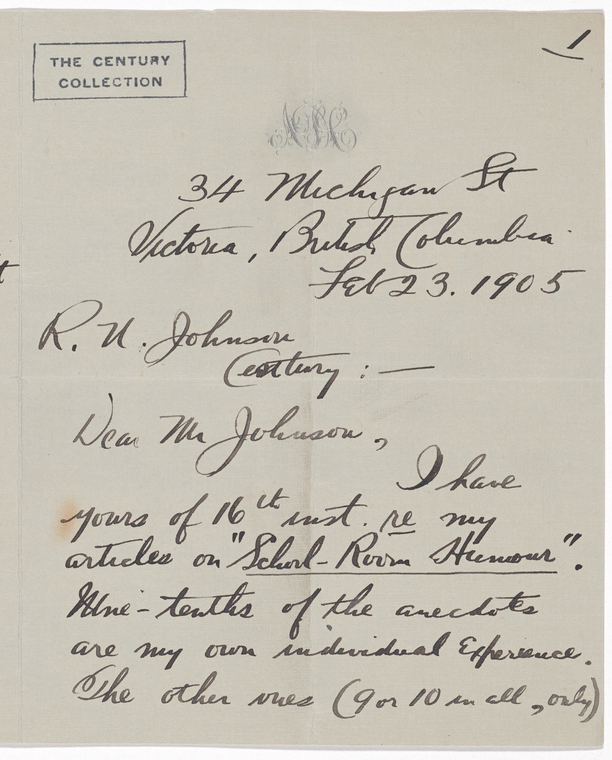 1
THE CENTURY
COLLECTION
34 Michigan St
Victoria, British Columbia
Feb 23. 1905
R. U. Johnson
Century : —
Dear Mr Johnson,
I have
yours of 16th inst. re my
articles on "School-Room Humour".
Nine-tenths of the anecdotes
are my own individual Experience.
The other ones (9 or 10 in all, only)